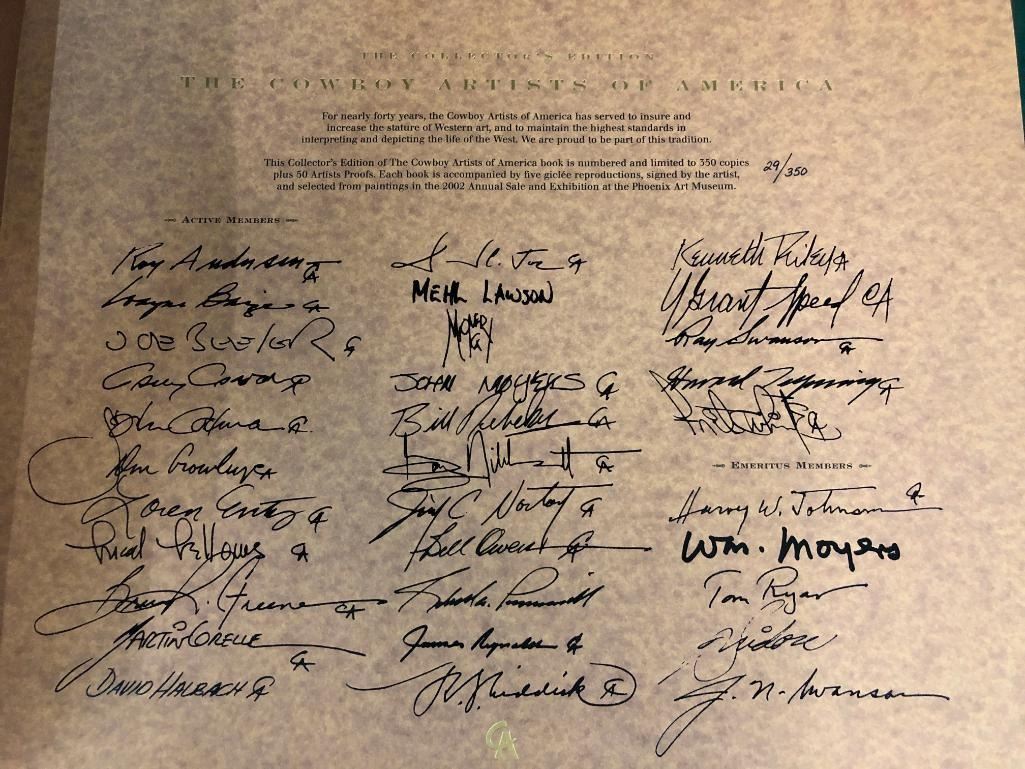 THE COLLECTOR'S EDITION
THE COWBOY ARTISTS OF AMERICA
For nearly forty years, the Cowboy Artists of America has served to insure and
increase the stature of Western art, and to maintain the highest standards in
interpreting and depicting the life of the West. We are proud to be part of this tradition.
This Collector's Edition of The Cowboy Artists of America book is numbered and limited to 350 copies
plus 50 Artists Proofs. Each book is accompanied by five giclée reproductions, signed by the artist,
and selected from paintings in the 2002 Annual Sale and Exhibition at the Phoenix Art Museum.
29/350
ACTIVE MEMBERS
Roy Andersen CA
Wayne Baize CA
JOE BEELER CA
CA
John CA
Don Crowley CA
Loren Entz CA
Fred Fellows CA
Greene CA
MARTIN GRELLE CA
DAVID HALBACH CA
CA
MEHL LAWSON
CA
JOHN MOYERS CA
Bill Nebeker CA
CA
Jim C. Norton CA
Bill Owen CA
James Reynolds CA
CA
Kenneth Riley CA
U Grant Speed CA
Ray Swanson CA
Howard Terpning CA
CA
EMERITUS MEMBERS
Harvey W. Johnson CA
Wm. Moyers
Tom Ryan
J. N. Swanson
CA